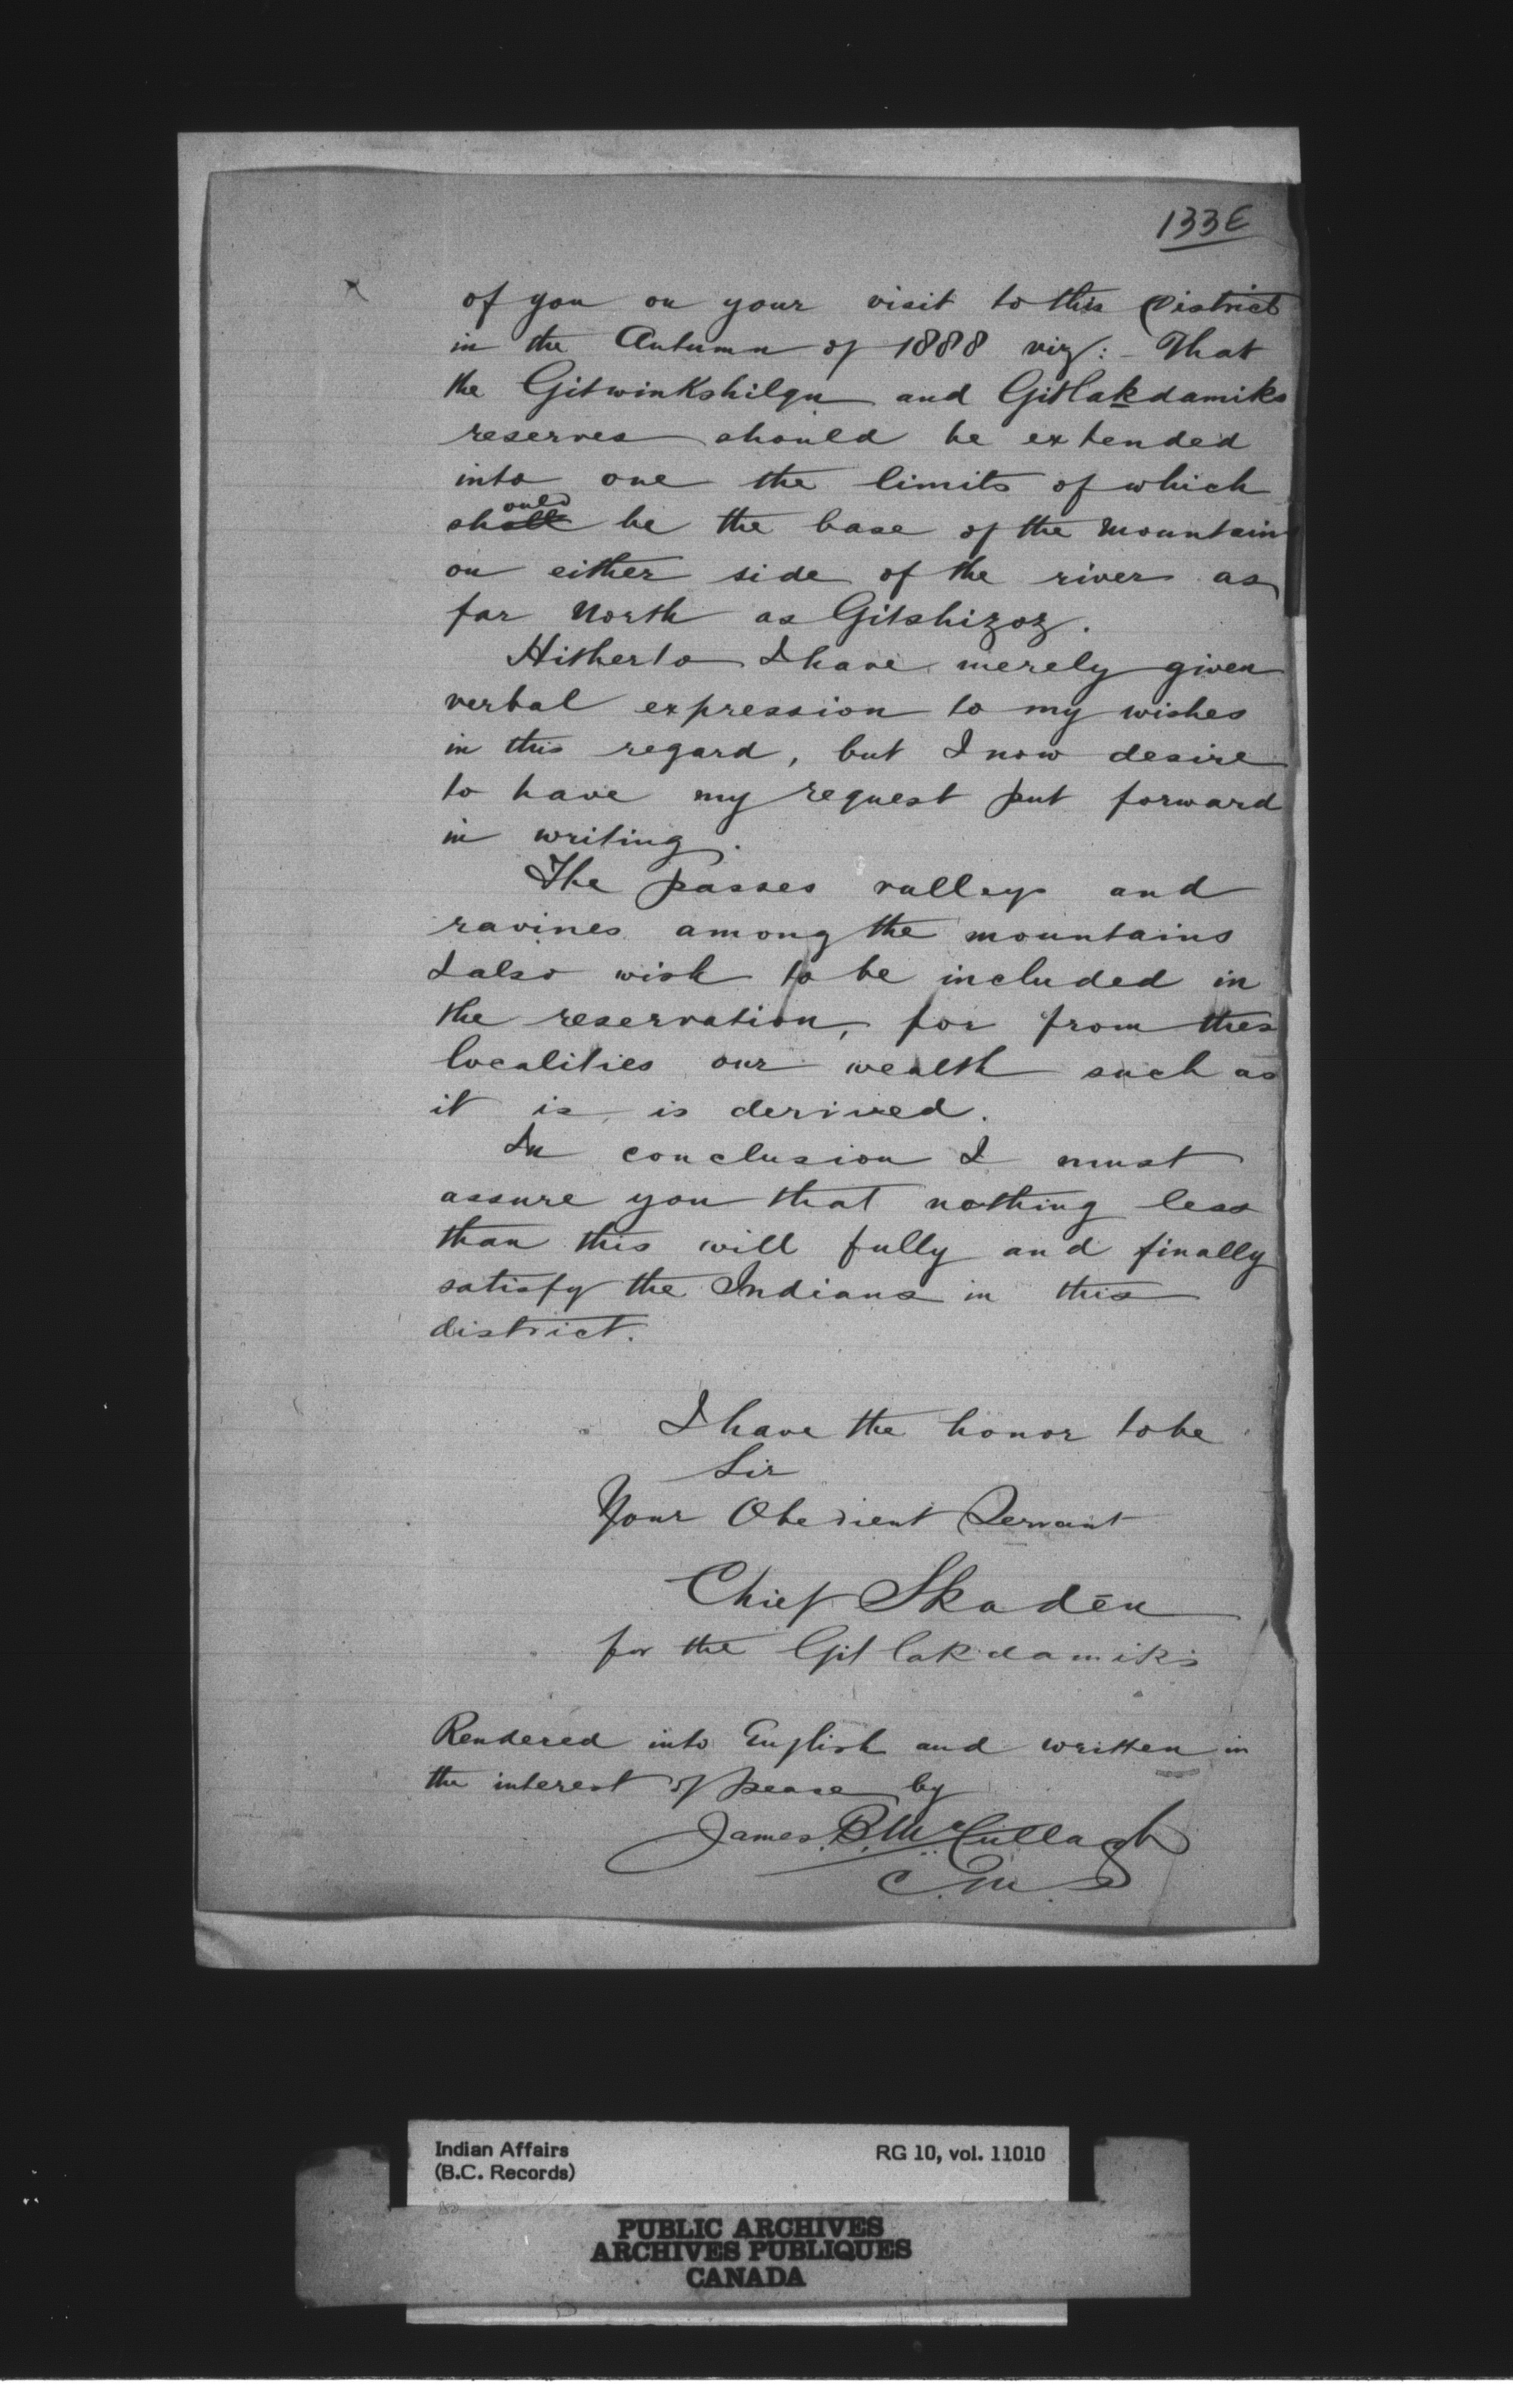 133E
of you on your visit to this District
in the Autumn of 1888 viz: - That
the Gitwinkshilgu and Gitlakdamiks
reserves should be extended
into one the limits of which
should be the base of the mountains
on either side of the river as
far North as Gitshizoz.
Hitherto I have merely given
verbal expression to my wishes
in this regard, but I now desire
to have my request put forward
in writing.
The passes valleys and
ravines among the mountains
I also wish to be included in
the reservation, for from thes
localities our wealth such as
it is, is derived.
In conclusion I must
assure you that nothing less
than this will fully and finally
satisfy the Indians in this
district.
I have the honor to be
Sir
Your Obedient Servant
Chief Skadēn
for the Gitlakdamiks
Rendered into English and written in
the interest of peace by
James. B. McCullagh
C.M.S
Indian Affairs RG 10, vol. 11010
(B.C. Records)
PUBLIC ARCHIVES
ARCHIVES PUBLIQUES
CANADA